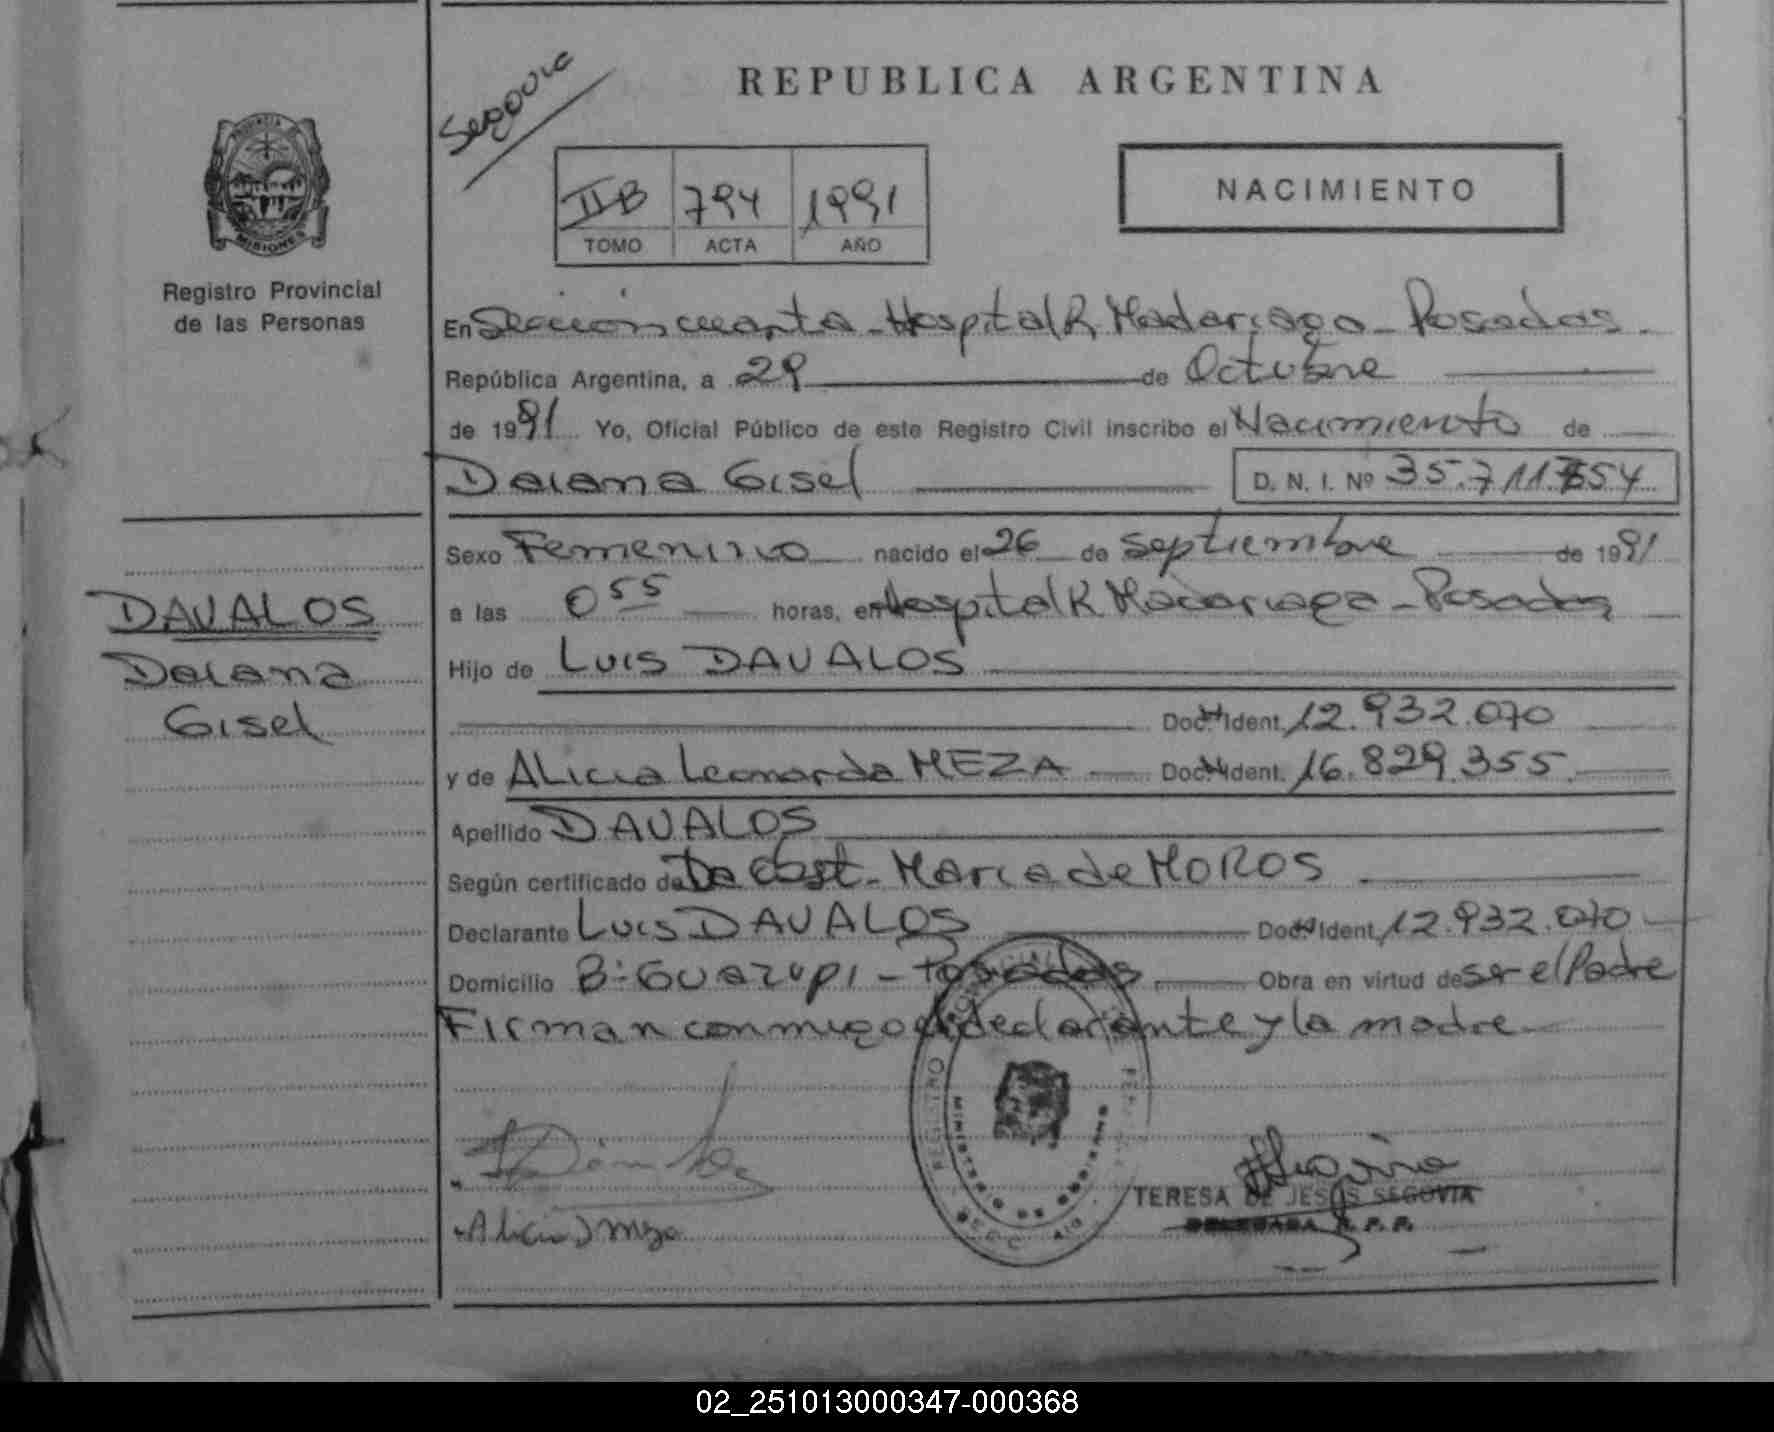 Segovia
REPUBLICA ARGENTINA
PROVINCIA DE
MISIONES
Registro Provincial
de las Personas
IIB 794 1991
TOMO ACTA AÑO
NACIMIENTO
En Sección cuarta - Hospital R. Madariaga - Posadas
República Argentina, a 29 de Octubre
de 1991 Yo, Oficial Público de este Registro Civil inscribo el Nacimiento de
Daiana Gisel D. N. I. Nº 35.711.754
Sexo Femenino nacido el 26 de Septiembre de 1991
a las 0 55 horas, en Hospital R. Madariaga - Posadas
Hijo de Luis DAVALOS
Doc. Ident. 12.932.070
y de Alicia Leonarda MEZA Doc. Ident. 16.829.355
Apellido DAVALOS
Según certificado de La Obst. Maria de MOROS
Declarante Luis DAVALOS Doc. Ident. 12.932.070
Domicilio Bº Guazupi - Posadas Obra en virtud de ser el Padre
Firman conmigo el declarante y la madre
DAVALOS
Daiana
Gisel
MINISTERIO DE GOBIERNO
Alicia Meza
TERESA DE JESUS SEGOVIA
DELEGADA R. P. P.
02_251013000347-000368